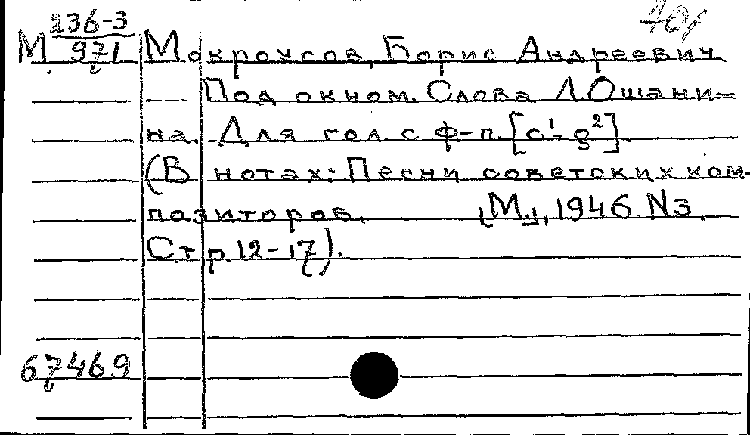 136-3
М 971
Мокроусов, Борис Андреевич
Под окном. Слова Л Ошани-
на. Для гол с ф-п. [c¹-g²]
(В нотах: Песни советских ком-
позиторов. [М.], 1946 N3.
Стр. 12-17).
67469